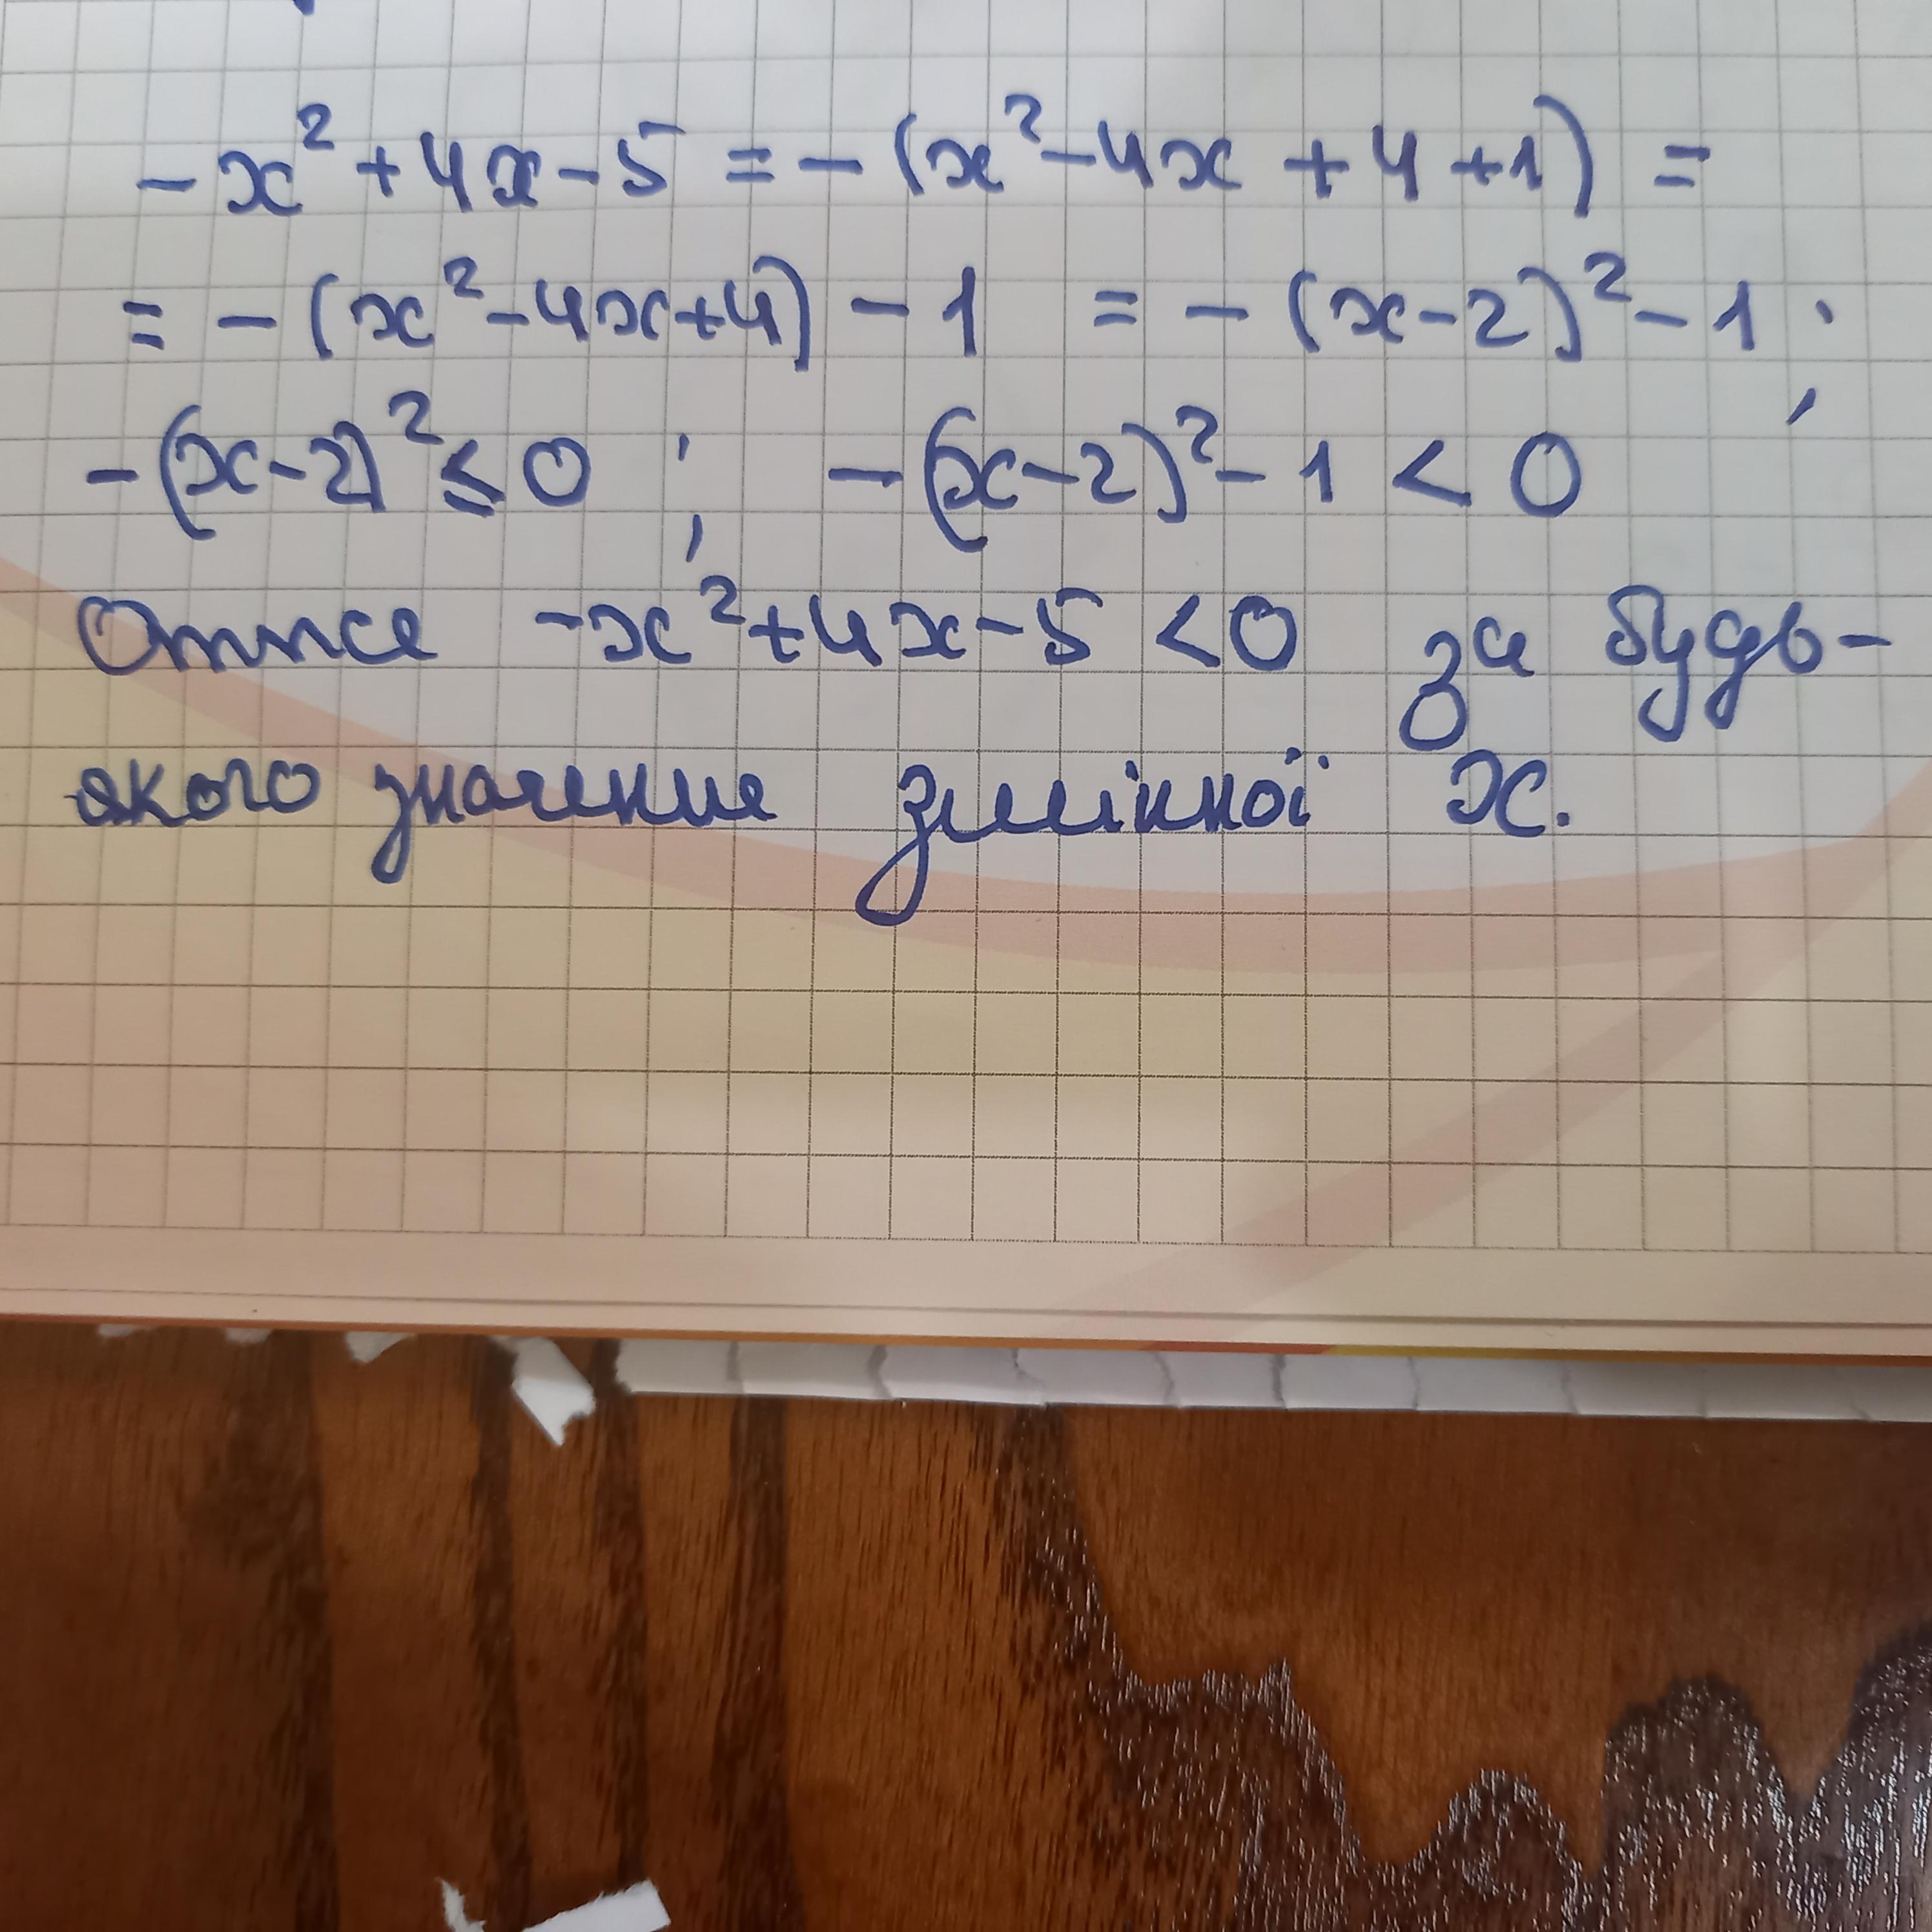 -x² + 4x - 5 = - (x² - 4x + 4 + 1) =
= - (x² - 4x + 4) - 1 = - (x - 2)² - 1 ;
- (x - 2)² ≤ 0 ; - (x - 2)² - 1 < 0
Отже -x² + 4x - 5 < 0 за будь-
якого значення змінної x.